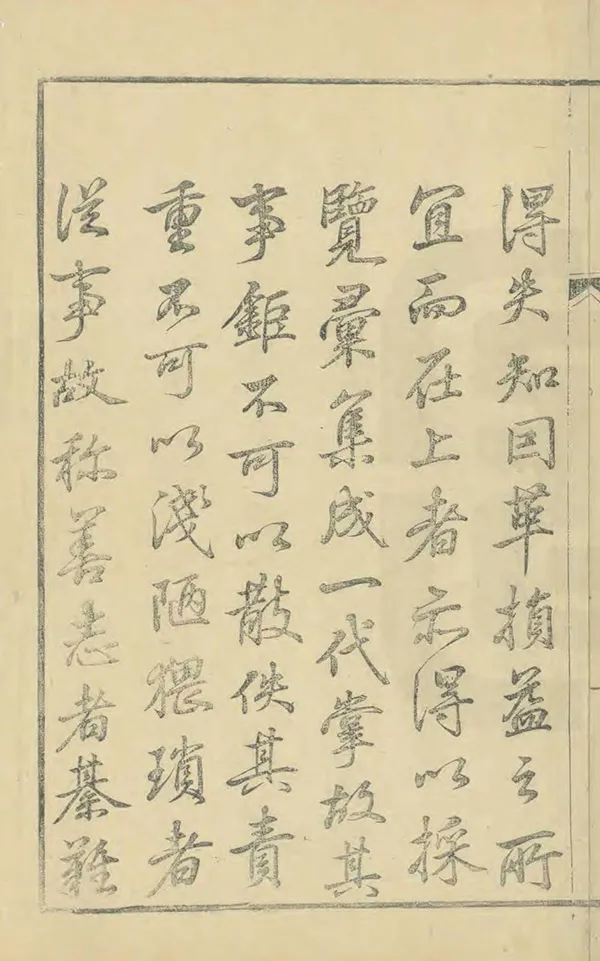 得失知因革損益之所
宜而在上者亦得以採
覽彙集成一代掌故其
事鉅不可以散佚其責
重不可以淺陋猥瑣者
從事故称善志者綦難